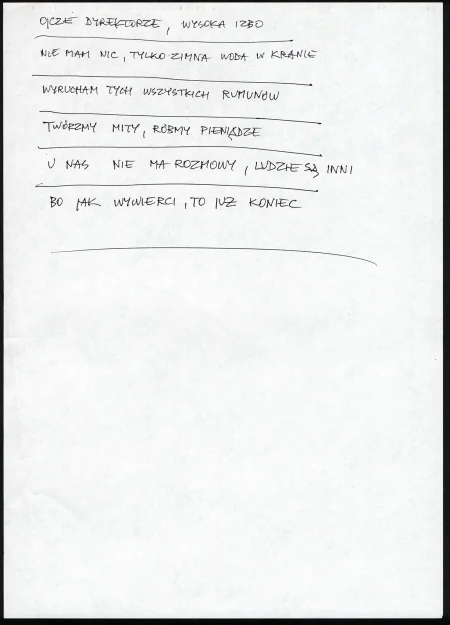 OJCZE DYREKTORZE, WYSOKA IZBO
NIE MAM NIC, TYLKO ZIMNA WODA W KRANIE
WYRUCHAM TYCH WSZYSTKICH RUMUNÓW
TWÓRZMY MITY, RÓBMY PIENIĄDZE
U NAS NIE MA ROZMOWY, LUDZIE SĄ INNI
BO JAK WYWIERCI, TO JUŻ KONIEC